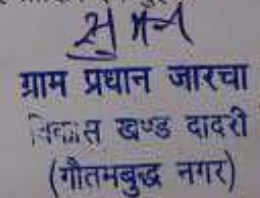 ग्राम प्रधान जारचा
विकास खण्ड दादरी
(गौतमबुद्ध नगर)